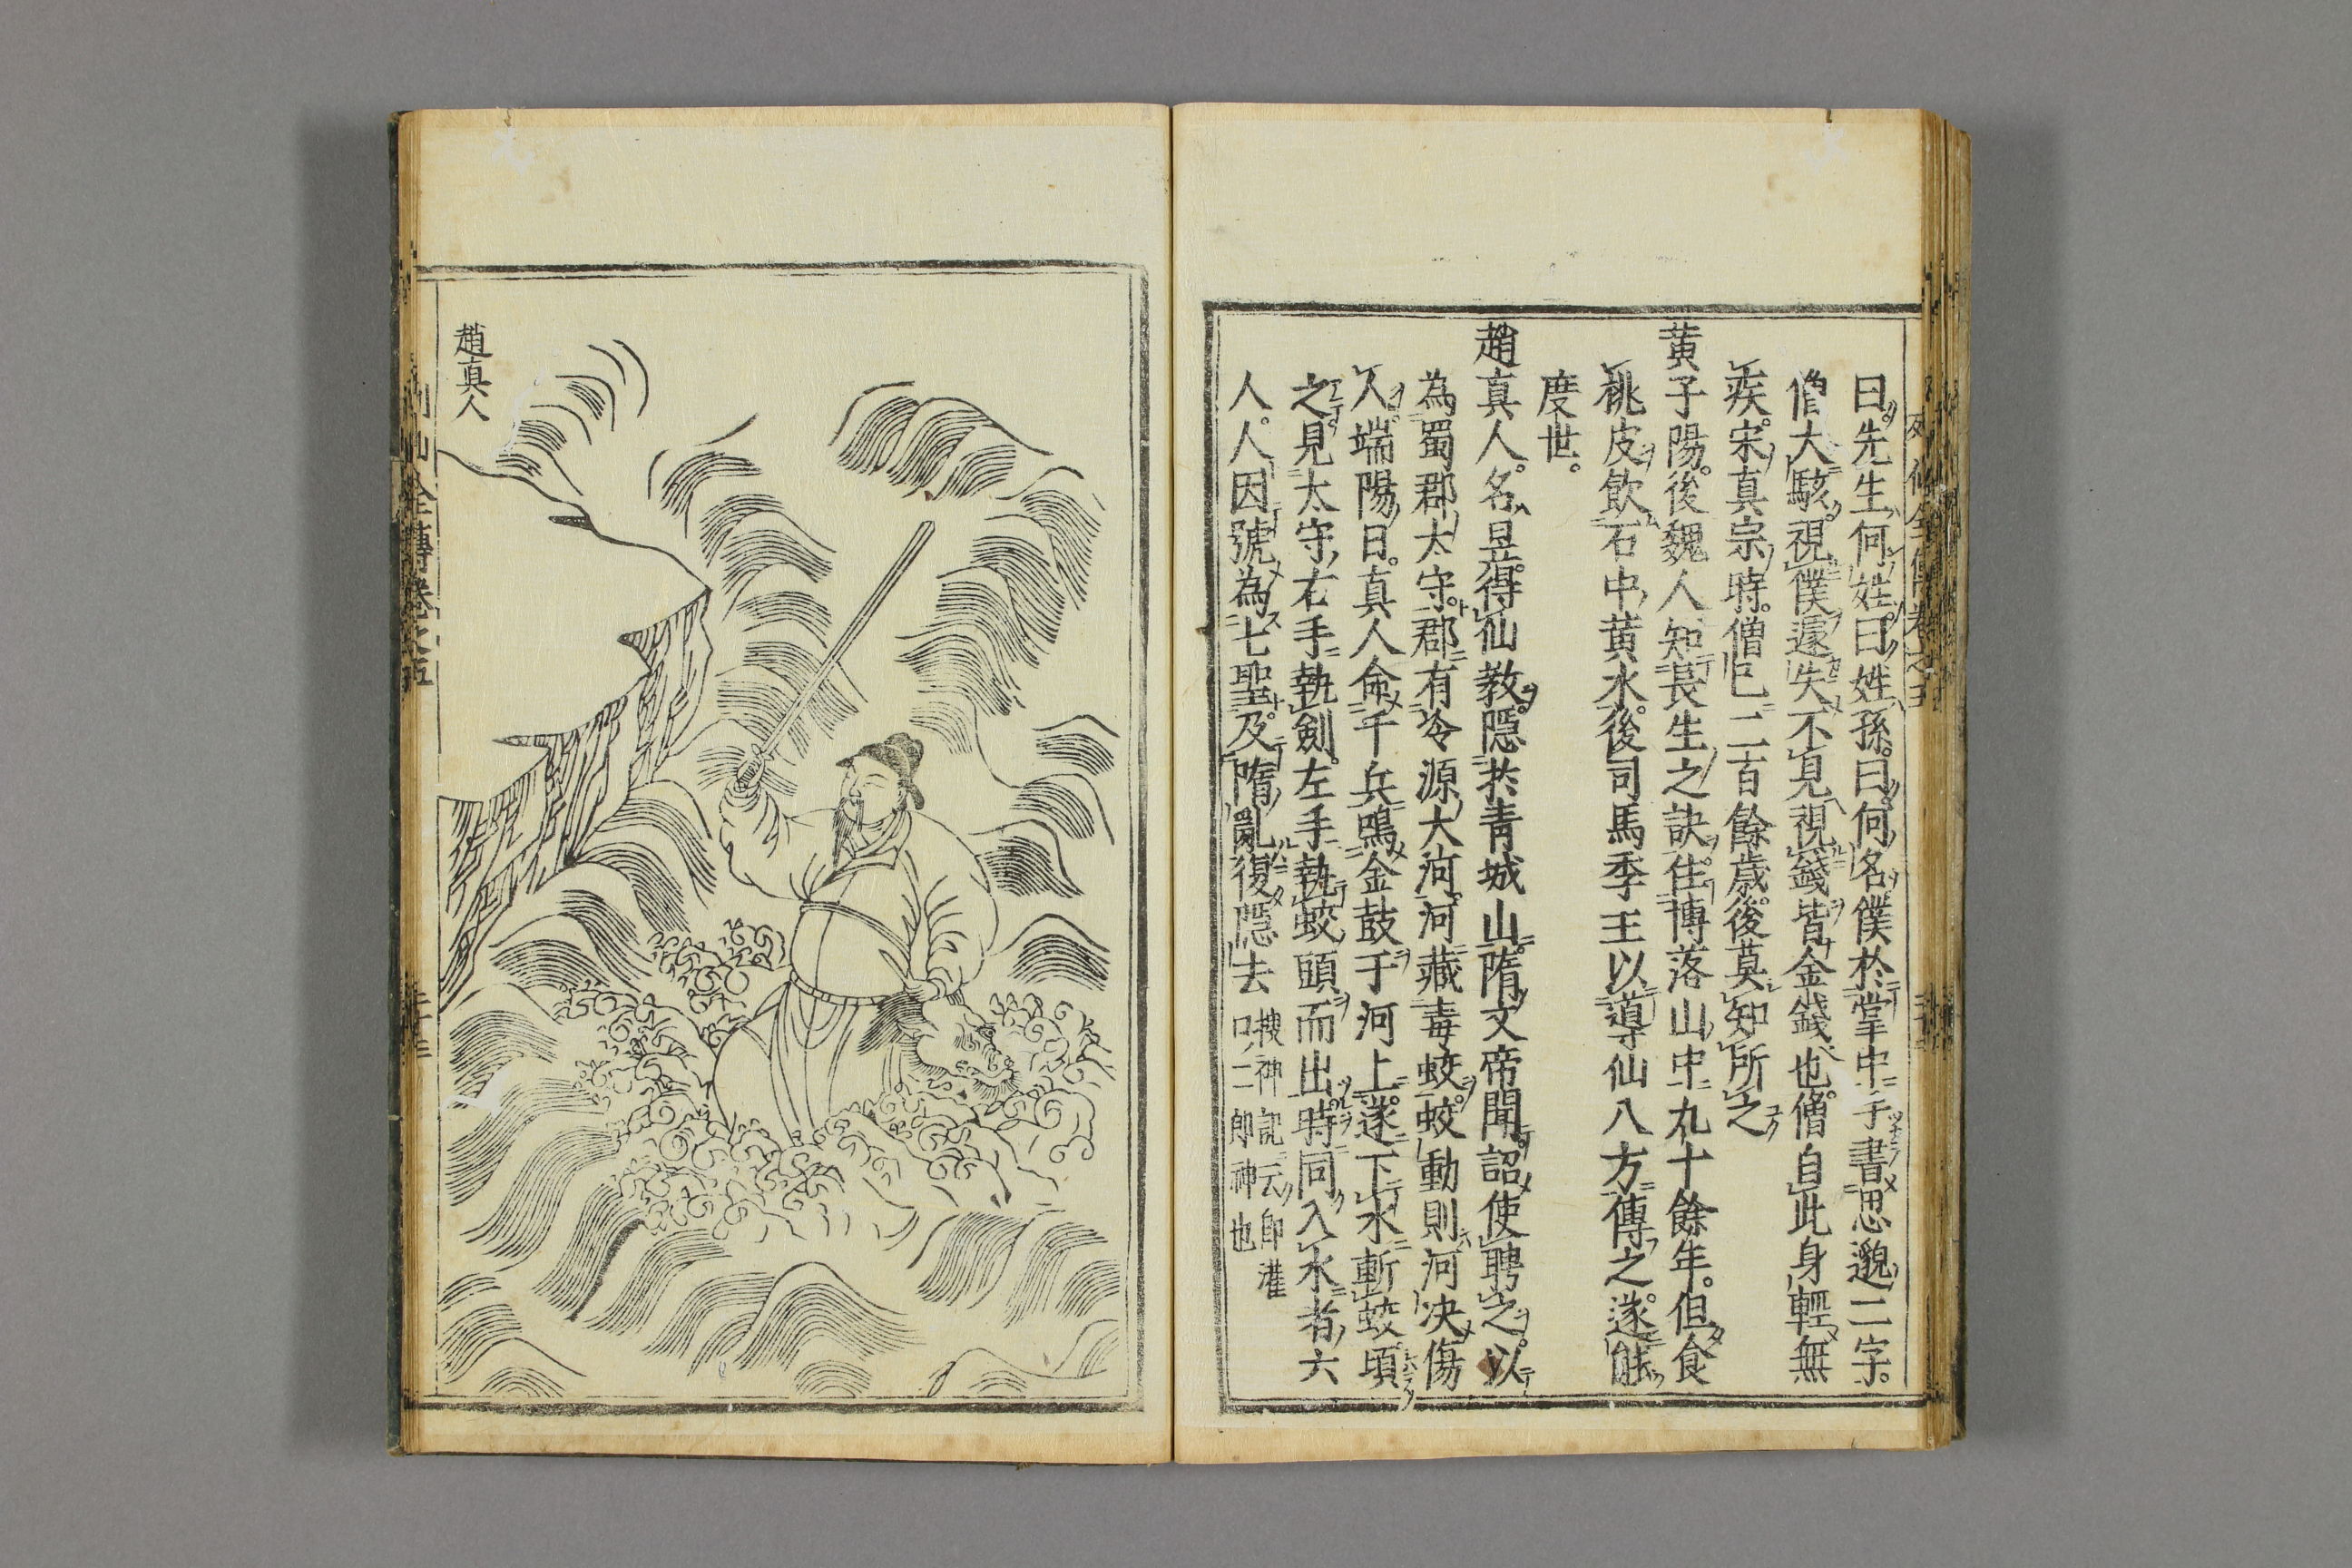 曰。先生何姓。曰姓孫。曰。何名。僕於掌中手書思邈二字。
僧大駭。視僕遽失不見視錢皆金錢也。僧自此身輕無
疾。宋真宗時。僧已二百餘歲。後莫知所之
黃子陽。後魏人知長生之訣。住博落山中九十餘年。但食
桃皮飲石中黃水。後司馬季主以導仙八方傳之。遂能
度世。
趙真人。名昱。得仙教。隱於青城山。隋文帝聞。詔使聘之。以
為蜀郡太守。郡有冷源大河。河藏毒蛟。蛟動則河決傷
人。端陽日。真人命千兵鳴金鼓于河上。遂下水斬蛟。頃
之。見太守右手執劍。左手執蛟頭而出。時同入水者六
人。人因號為七聖。及隋亂復隱去
搜神記云即灌
口二郎神也
趙真人
列仙全傳卷之五